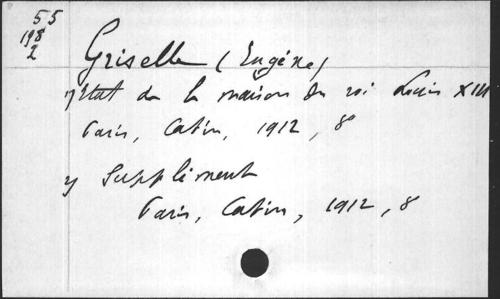 55
198
2
Griselle (Eugène)
1) Etat de la maison du roi Louis XIII
Paris, Catin, 1912, 8°
2) Supplément
Paris, Catin, 1912, 8